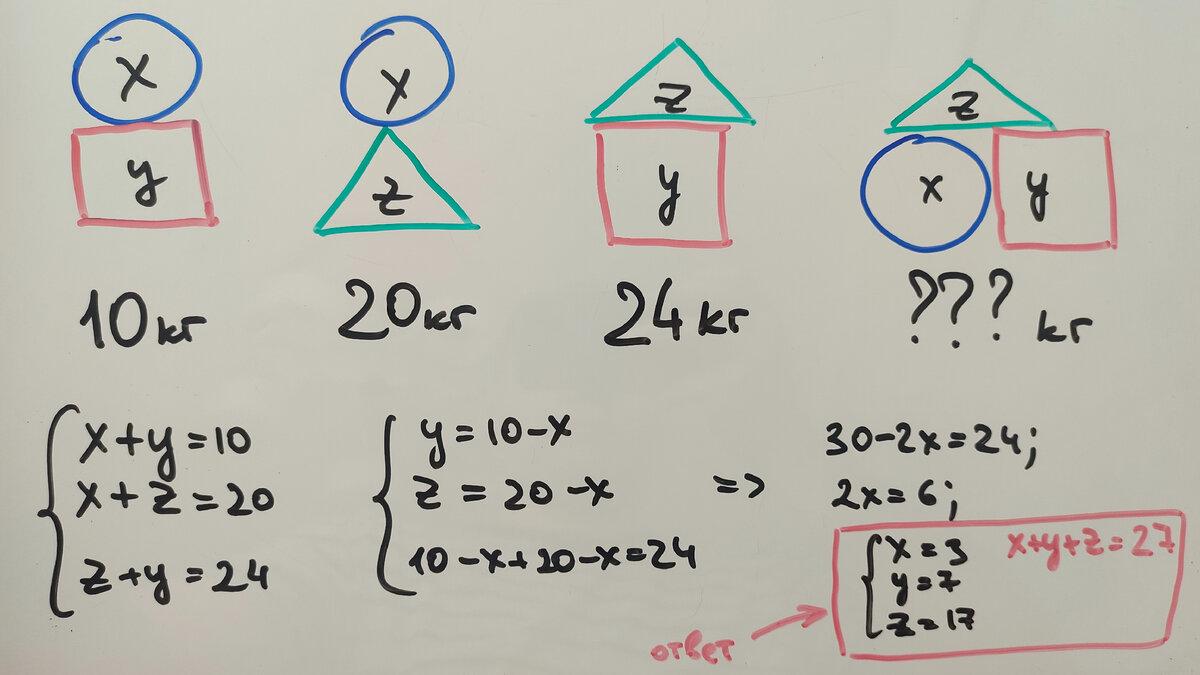 x
y
10кг
x
z
20кг
z
y
24кг
z
x y
??? кг
x+y=10
x+z=20
z+y=24
y=10-x
z=20-x
10-x+20-x=24
=>
30-2x=24;
2x=6;
x=3
y=7
z=17
x+y+z=27
ответ